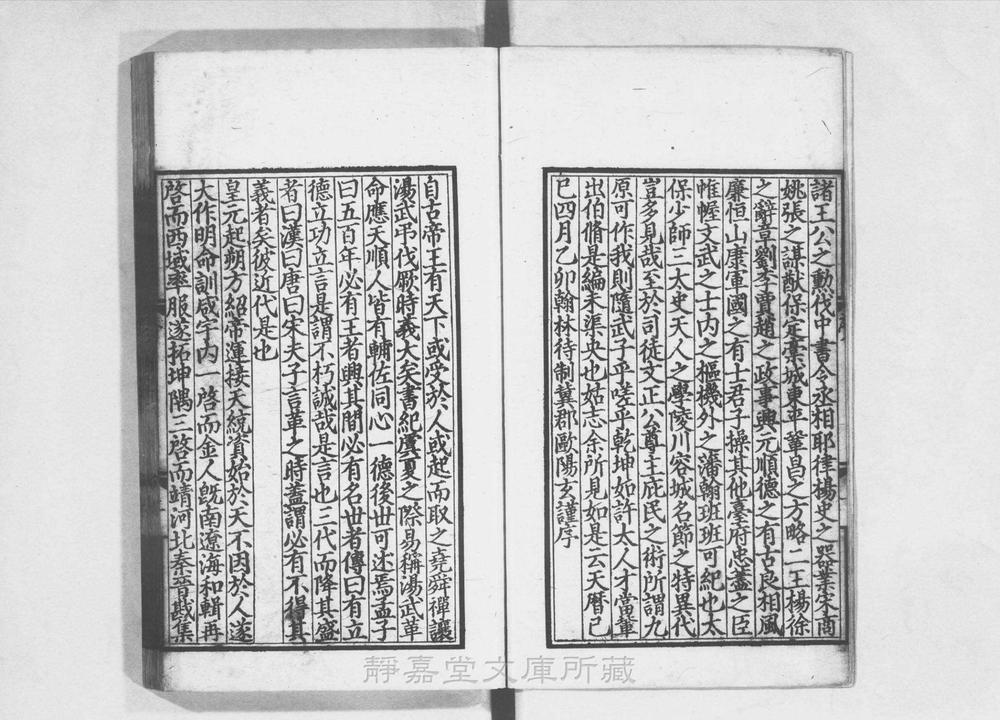 諸王公之勳伐中書令丞相耶律楊史之器業宋商
姚張之謀猷保定藁城東平鞏昌之方略二王楊徐
之辭章劉李賈趙之政事興元順德之有古良相風
廉恒山康軍國之有士君子操其他臺府忠藎之臣
帷幄文武之士內之樞機外之藩翰班班可紀也太
保少師三太史天人之學陵川容城名節之特異代
豈多見哉至於司徒文正公尊主庇民之術所謂九
原可作我則隨武子乎嗟乎乾坤如許大人才當輩
出伯脩是編未渠央也姑志余所見如是云天曆己
巳四月乙卯翰林待制冀郡歐陽玄謹序
自古帝王有天下或受於人或起而取之堯舜禪讓
湯武弔伐厥時義大矣書紀虞夏之際易稱湯武革
命應天順人皆有輔佐同心一德後世可述焉孟子
曰五百年必有王者興其間必有名世者傳曰有立
德立功立言是謂不朽誠哉是言也三代而降其盛
者曰漢曰唐曰宋夫子言革之時蓋謂必有不得其
義者矣彼近代是也
皇元起朔方紹帝運接天統資始於天不因於人遂
大作明命訓咸宇內一啓而金人旣南遼海和輯再
啓而西域率服遂拓坤隅三啓而靖河北秦晉戡集
靜嘉堂文庫所藏